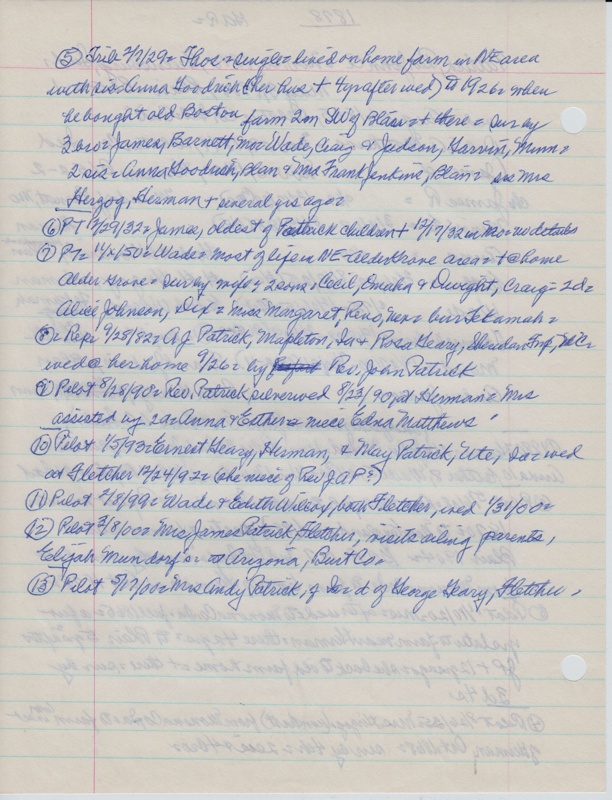 ⑤ Trib 2/7/29 = Thos = single = lived on home farm in NE area
with sis Anna Goodrich (her hus + 4 yr after wed) til 1926 = when
he bought old Boston farm 2m SW of Blair = + there = sur by
3 bro = James, Barnett, Mo = Wade, Craig & Judson, Garvin, Minn =
2 sis = Anna Goodrich, Blair & Mrs Frank Jenkins, Blair = sis Mrs
Herzog, Herman + several yrs ago =
⑥ PT 12/29/32 = James, oldest of Patrick children + 12/17/32 in Mo = no details
⑦ PT = = Wade = most of life in NE - Alder Grove area = + @ home
Alder Grove = sur by wife = 2 sons = Cecil, Omaha & Dwight, Craig = 2d =
Alice Johnson, & Miss Margaret, Reno, Nev = bur Tekamah =
⑧ = Rep = 9/28/82 = A J Patrick, Mapleton, Ia & Rosa Heary, Sheridan Twp,
wed @ her home 9/26 = by Rev. John Patrick
⑨ Pilot 8/28/90 = Rev. Patrick 8/23/90 at Herman = Mrs
assisted by 2d = Anna & Esther = niece Edna Matthews
⑩ Pilot 1/5/93 = Ernest Heary, Herman, & May Patrick, Ute, Ia = wed
at Fletcher 12/24/92 = (she niece of Rev J A P?)
⑪ Pilot 2/8/99 = Wade & Edith Wilcox, both Fletcher, wed 1/31/00 =
⑫ Pilot 3/8/00 = Mrs James Patrick, Fletcher, visits along parents,
Elijah Mundorf = = Arizona, Burt Co =
⑬ Pilot 5/17/00 = Mrs Andy Patrick, of Ia = d of George Heary, Fletcher =